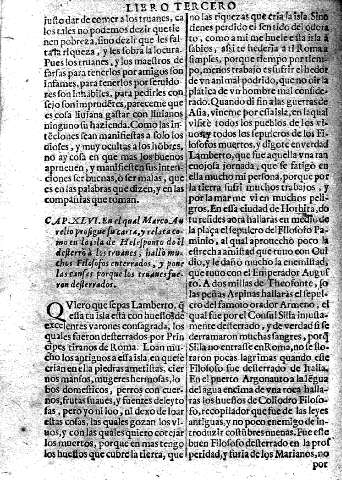 LIBRO TERCERO
justo dar de comer a los truanes, ca
los tales no podemos dezir que tie-
nen pobreza, sino dezir que les fal-
ta riqueza, y les sobra la locura.
Pues los truanes, y los maestros de
farsas para tenerlos por amigos son
infames, para tenerlos por seruido-
res son inhabiles, para pedirles con-
sejo son imprudentes, pareceme que
es cosa liuiana gastar con liuianos
ninguno su hazienda. Como las in-
tẽciones seã manifiestas a solo los
dioses, y muy ocultas a los hõbres,
no ay cosa en que mas los buenos
aprueuen, y manifiesten sus inten-
ciones ser buenas, o ser malas, que
es en las palabras que dizen, y en las
compañias que toman.
CAP. XLVI. En el qual Marco Au
relio prosigue su carta, y relata co-
mo en la isla de Helesponto do el
desterrò a los truanes, hallò muchos
Filosofos enterrados, y pone
las causas porque los truanes fue-
ron desterrados.
QViero que sepas Lamberto, q̃
esta tu isla esta con huessos de
excelentes varones consagrada, los
quales fueron desterrados por Prin-
cipes tiranos de Roma. Loan mu-
cho los antiguos a essa isla, en que se
crian en ella piedras ametistas, cier-
nos mansos, mugeres hermosas, lo-
bos domesticos, perros con cuer-
nos, frutas suaues, y fuentes deleyto-
sas, pero yo ni loo, ni dexo de loar
estas cosas, las quales gozan los vi-
uos, y con las quales quiero cotejar
los muertos, porque en mas tengo
los huessos que cubre la tierra, que
no las riquezas que cria la isla. Sino
tienes perdido el sentido del odora-
to, como a mi me huele essa isla a
sabios, assi te hederia a ti Roma a
simples, porque tiempo por tiem-
po, menos trabajo es sufrir el hedor
de vn animal podrido, que no oir la
platica de vn hombre mal conside-
rado. Quando di fin a las guerras de
Asia, vineme por essa isla, en la qual
visitè todos los pueblos de los vi-
uos, y todos los sepulcros de los Fi-
losofos muertos, y digote en verdad
Lamberto, que fue aquella vna tan
enojosa jornada, que se fatigò en
ella mucho mi persona, porque por
la tierra sufri muchos trabajos, y
por la mar me vi en muchos peli-
gros. En essa ciudad de Horbita, do
tu resides aora hallaràs en medio de
la plaça el sepulcro del Filosofo Pa-
minio, al qual aprouechò poco la
estrecha amistad que tuuo con Oui-
dio, y le dañò mucho la enemistad,
que tuuo con el Emperador Augus-
to. A dos millas de Theofonte, so
las peñas Arpinas hallaràs el sepul-
cro del famoso orador Armeno, el
qual fue por el Consul Silla injusta-
mente desterrado, y de verdad si se
derramaron muchas sangres, porq̃
Silla no entrasse en Roma, no se llo-
raron pocas lagrimas quando este
Filosofo fue desterrado de Italia.
En el puerto Argonauto a la lẽgua
del agua encima de vna roca halla-
ràs los huessos de Collodro Filoso-
fo, recopilador que fue de las leyes
antiguas, y no poco enemigo de in-
troducir costũbres nueuas. Fue este
buen Filosofo desterrado en la pros
peridad, y furia de los Marianos, no
por